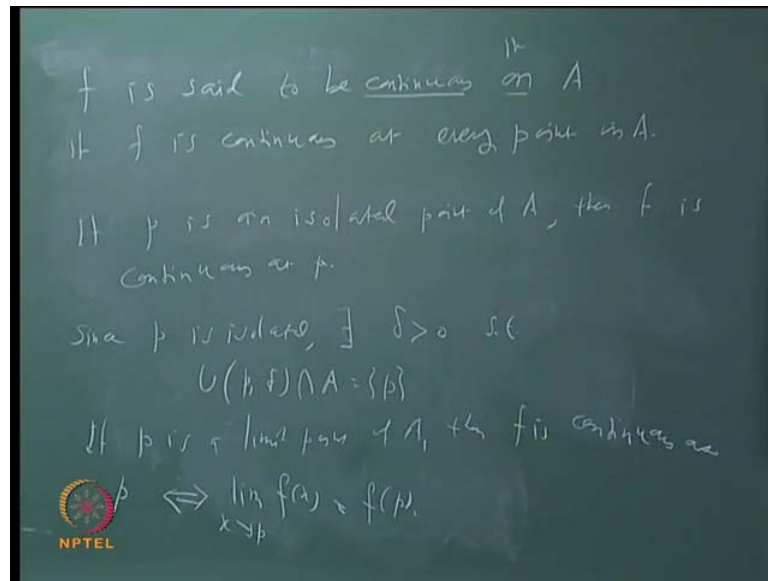 f is said to be continuous on A
if f is continuous at every point in A.
If p is an isolated point of A, then f is
continuous at p.
Since p is isolated, ∃ δ>0 s.t.
U(p, δ)∩A = {p}
If p is a limit point of A, then f is continuous at
p ⇔ lim f(x) = f(p).
x→p
NPTEL